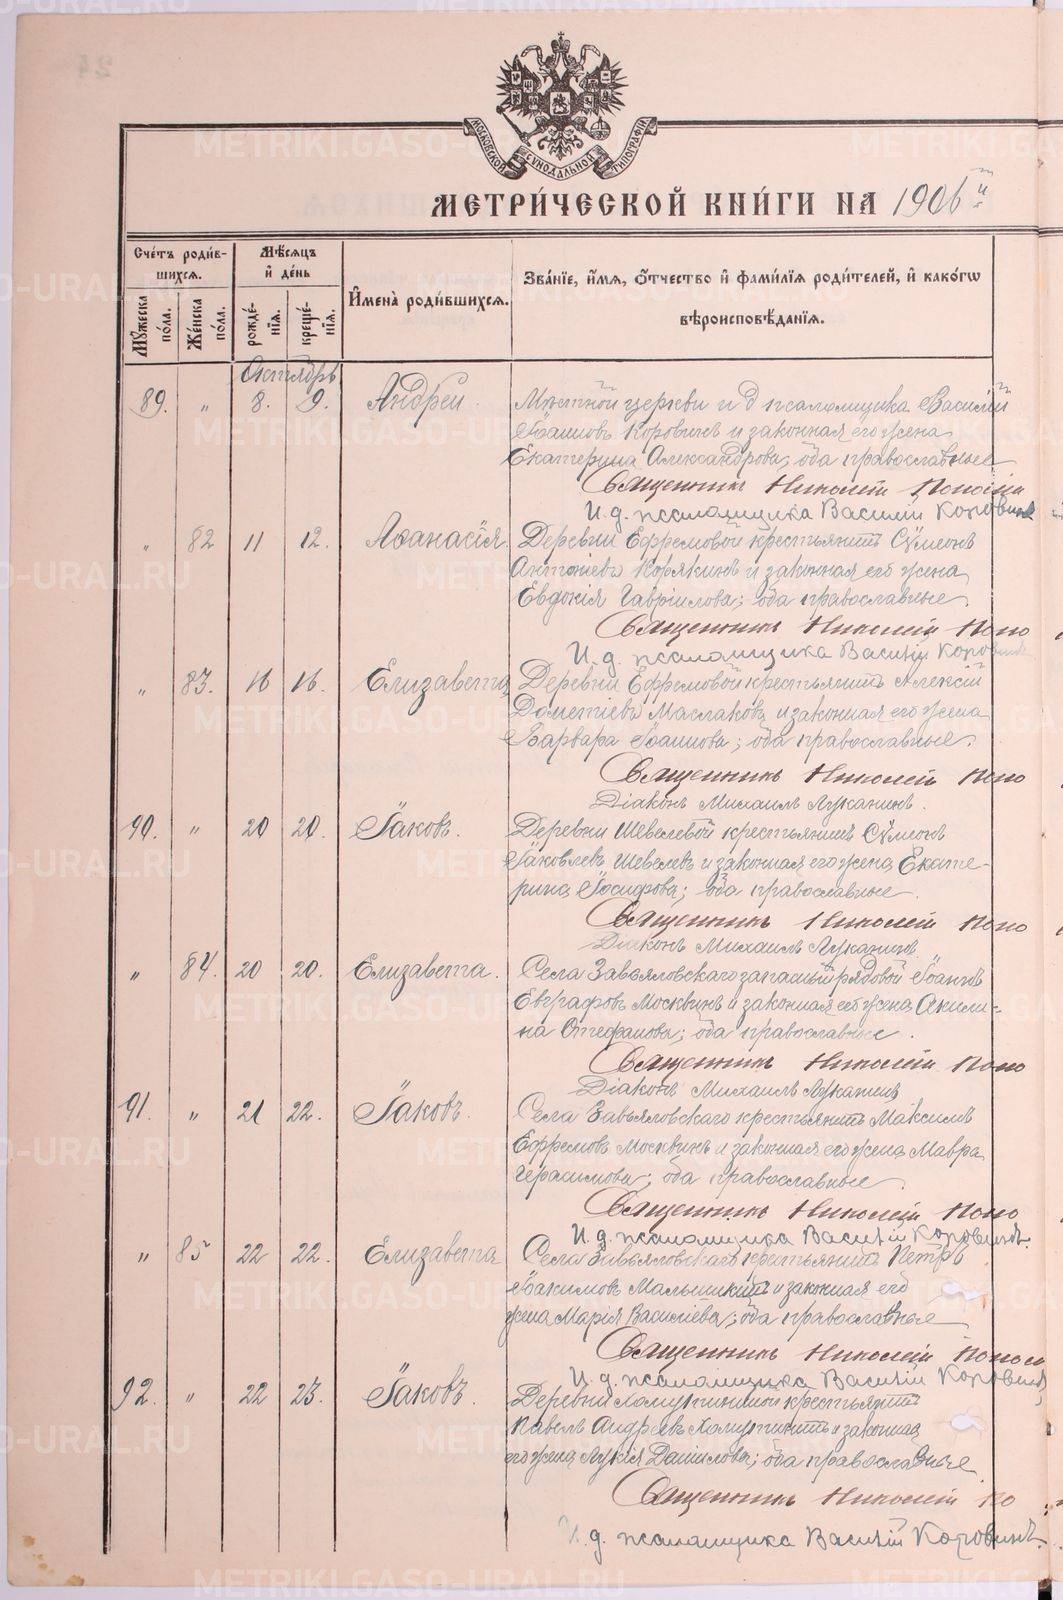 МОСКОВСКОЙ СУНОДАЛЬНОЙ ТИПОГРАФІИ
МЕТРИ́ЧЕСКОЙ КНИ́ГИ НА 1906 й
Сче́тъ роди́в-
шихся.
Мѣ́сяцъ
и҆ де́нь
И҆мена̀ роди́вшихся.
Зва́нїе, и҆́мя, ѻ҆́тчество и҆ фами́лїя роди́телей, и҆ како́гѡ
вѣроисповѣ́данїя.
Мꙋ́жеска по́ла.
Же́нска по́ла.
рожде́-нїя.
креще́-нїя.
Октябрь
89. " 8. 9. Андрей. Мѣстной церкви и д псаломщика Василій
Іоанновъ Коровинъ и законная его жена
Екатерина Александрова; оба православные
Священникъ Николай
И. д. псаломщика Василій Коровинъ
" 82 11 12. Аѳанасія. Деревни Ефремовой крестьянинъ Сѵмеонъ
Антоніевъ Корякинъ и законная его жена
Евдокія Гавріилова; оба православные.
Священникъ Николай Попо
И. д. псаломщика Василій Коровинъ
" 83. 16 16. Елизавета Деревни Ефремовой крестьянинъ Алексій
Дометіевъ Маслаковъ и законная его жена
Варвара Іоаннова; оба православные.
Священникъ Николай Попо
Діаконъ Михаилъ Луканинъ.
90. " 20 20. Іаковъ. Деревни Шевелевой крестьянинъ Сѵмеонъ
Іаковлевъ Шевелевъ и законная его жена Екате-
рина Іосифова; оба православные.
Священникъ Николай Попо
Діаконъ Михаилъ Луканинъ.
" 84. 20 20. Елизавета. Села Завьяловскаго запасный рядовой Іоаннъ
Евграфовъ Москвинъ и законная его жена Акили-
на Стефанова; оба православные.
Священникъ Николай Попо
Діаконъ Михаилъ Луканинъ
91. " 21 22. Іаковъ. Села Завьяловскаго крестьянинъ Максимъ
Ефремовъ Москвинъ и законная его жена Мавра
Герасимова; оба православные.
Священникъ Николай Попо
И. д. псаломщика Василій Коровинъ.
" 85 22 22. Елизавета Села Завьяловскаго крестьянинъ Петръ
Іоакимовъ Малышкинъ и законная его
жена Марія Василіева; оба православные
Священникъ Николай
И. д. псаломщика Василій Коровинъ
92. " 22 23. Іаковъ. Деревни крестьянинъ
Павелъ Андреевъ и законная
его жена Лукія Даніилова; оба православные.
Священникъ Николай По
И. д. псаломщика Василій Коровинъ.
METRIKI.GASO-URAL.RU